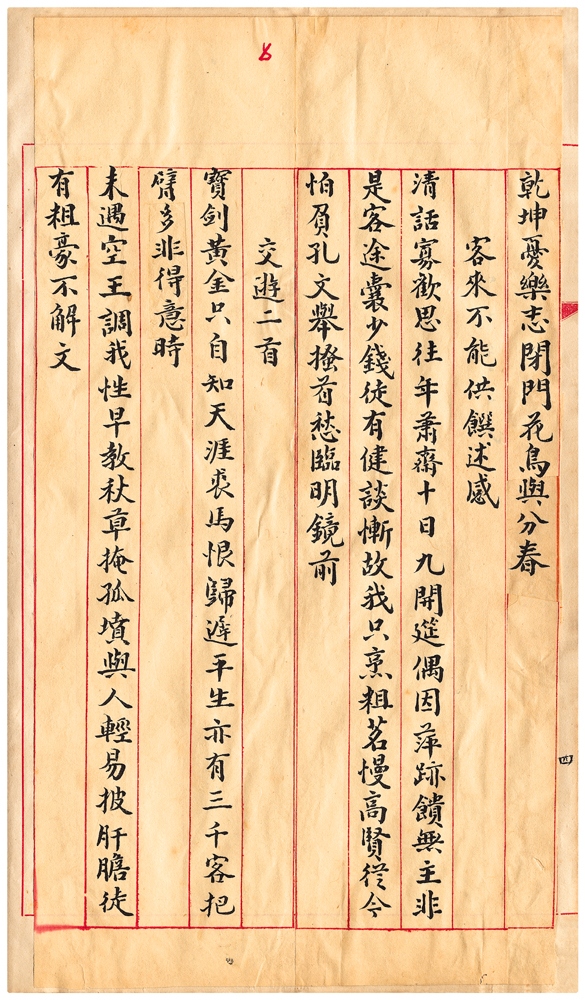 乾坤憂樂志閉門花鳥與分春
客來不能供饌述感
清話寡歡思往年蕭齋十日九開筵偶因萍跡饋無主非
是客途囊少錢徒有健談慚故我只烹粗茗慢高賢從今
怕負孔文舉搔首愁臨明鏡前
交遊二首
寶劍黃金只自知天涯裘馬恨歸遲平生亦有三千客把
臂多非得意時
未遇空王調我性早教秋草掩孤墳與人輕易披肝膽徒
有粗豪不解文
四
四